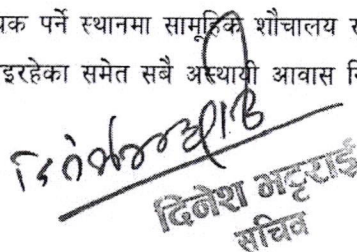 यक पर्ने स्थानमा सामूहिक शौचालय
इरहेका समेत सबै अस्थायी आवास
दिनेश भट्टराई
सचिव